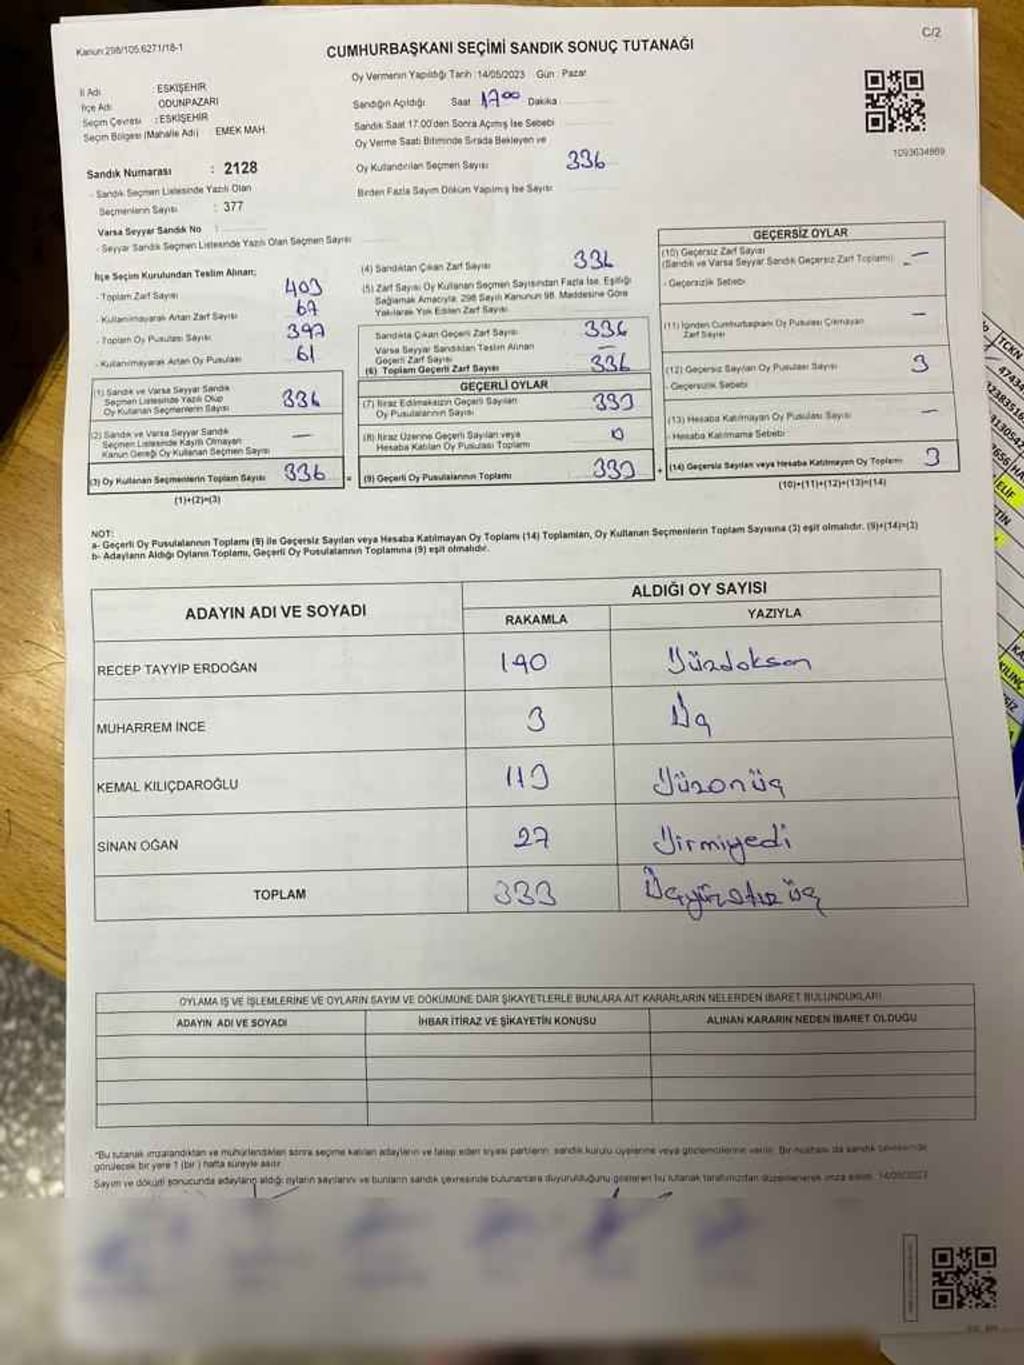 Kanun:298/105,6271/18-1
C/2
CUMHURBAŞKANI SEÇİMİ SANDIK SONUÇ TUTANAĞI
İl Adı : ESKİŞEHİR
İlçe Adı : ODUNPAZARI
Seçim Çevresi : ESKİŞEHİR
Seçim Bölgesi (Mahalle Adı) : EMEK MAH.
Sandık Numarası : 2128
- Sandık Seçmen Listesinde Yazılı Olan
Seçmenlerin Sayısı : 377
Varsa Seyyar Sandık No :
- Seyyar Sandık Seçmen Listesinde Yazılı Olan Seçmen Sayısı
Oy Vermenin Yapıldığı Tarih :14/05/2023 Gün : Pazar
Sandığın Açıldığı Saat 17 00 Dakika
Sandık Saat 17.00'den Sonra Açılmış İse Sebebi
Oy Verme Saati Bitiminde Sırada Bekleyen ve
Oy Kullandırılan Seçmen Sayısı 336
Birden Fazla Sayım Döküm Yapılmış İse Sayısı
1093634869
İlçe Seçim Kurulundan Teslim Alınan;
- Toplam Zarf Sayısı 403
- Kullanılmayarak Artan Zarf Sayısı 67
- Toplam Oy Pusulası Sayısı 397
- Kullanılmayarak Artan Oy Pusulası 61
(1) Sandık ve Varsa Seyyar Sandık
Seçmen Listesinde Yazılı Olup
Oy Kullanan Seçmenlerin Sayısı 336
(2) Sandık ve Varsa Seyyar Sandık
Seçmen Listesinde Kayıtlı Olmayan
Kanun Gereği Oy Kullanan Seçmen Sayısı —
(3) Oy Kullanan Seçmenlerin Toplam Sayısı 336 =
(1)+(2)=(3)
(4) Sandıktan Çıkan Zarf Sayısı 336
(5) Zarf Sayısı Oy Kullanan Seçmen Sayısından Fazla İse, Eşitliği
Sağlamak Amacıyla, 298 Sayılı Kanunun 98. Maddesine Göre
Yakılarak Yok Edilen Zarf Sayısı
Sandıkta Çıkan Geçerli Zarf Sayısı 336
Varsa Seyyar Sandıktan Teslim Alınan
Geçerli Zarf Sayısı —
(6) Toplam Geçerli Zarf Sayısı 336
GEÇERLİ OYLAR
(7) İtiraz Edilmeksizin Geçerli Sayılan
Oy Pusulalarının Sayısı 333
(8) İtiraz Üzerine Geçerli Sayılan veya
Hesaba Katılan Oy Pusulası Toplamı 0
(9) Geçerli Oy Pusulalarının Toplamı 333 +
GEÇERSİZ OYLAR
(10) Geçersiz Zarf Sayısı
(Sandık ve Varsa Seyyar Sandık Geçersiz Zarf Toplamı) —
- Geçersizlik Sebebi
(11) İçinden Cumhurbaşkanı Oy Pusulası Çıkmayan
Zarf Sayısı —
(12) Geçersiz Sayılan Oy Pusulası Sayısı 3
- Geçersizlik Sebebi
(13) Hesaba Katılmayan Oy Pusulası Sayısı —
- Hesaba Katılmama Sebebi
(14) Geçersiz Sayılan veya Hesaba Katılmayan Oy Toplamı 3
(10)+(11)+(12)+(13)=(14)
NOT:
a- Geçerli Oy Pusulalarının Toplamı (9) ile Geçersiz Sayılan veya Hesaba Katılmayan Oy Toplamı (14) Toplamları, Oy Kullanan Seçmenlerin Toplam Sayısına (3) eşit olmalıdır. (9)+(14)=(3)
b- Adayların Aldığı Oyların Toplamı, Geçerli Oy Pusulalarının Toplamına (9) eşit olmalıdır.
ADAYIN ADI VE SOYADI
ALDIĞI OY SAYISI
RAKAMLA YAZIYLA
RECEP TAYYİP ERDOĞAN 190 Yüzdoksan
MUHARREM İNCE 3 Üç
KEMAL KILIÇDAROĞLU 113 Yüzonüç
SİNAN OĞAN 27 Yirmiyedi
TOPLAM 333 Üçyüzotuzüç
OYLAMA İŞ VE İŞLEMLERİNE VE OYLARIN SAYIM VE DÖKÜMÜNE DAİR ŞİKAYETLERLE BUNLARA AİT KARARLARIN NELERDEN İBARET BULUNDUKLARI
ADAYIN ADI VE SOYADI İHBAR İTİRAZ VE ŞİKAYETİN KONUSU ALINAN KARARIN NEDEN İBARET OLDUĞU
*Bu tutanak imzalandıktan ve mühürlendikten sonra seçime katılan adayların ve talep eden siyasi partilerin, sandık kurulu üyelerine veya gözlemcilerine verilir. Bir nüshası da sandık çevresinde
görülecek bir yere 1 (bir) hafta süreyle asılır.
Sayım ve dökim sonucunda adayların aldığı oyların sayılarını ve bunların sandık çevresinde bulunanlara duyurulduğunu gösteren bu tutanak tarafımızdan düzenlenerek imza edildi. 14/05/2023
TCKN